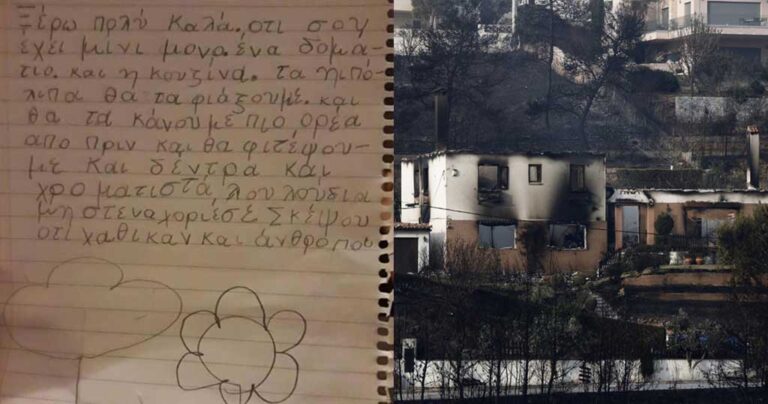 Ξέρω πολύ Καλά. οτι σου
έχει μίνι μονο. ένα δομά-
τιο. και η κουζίνα. τα ηιπό-
λιπα θα τα φιάξουμέ. και
θα τα κάνουμέ πιο ορέα
απο πριν και θα φιτέψου-
μέ και δέντρα και
χρο ματιστά λου λούδια
μη στεναχοριέσέ Σκέψου
οτι χαθικαν και άνθροποι